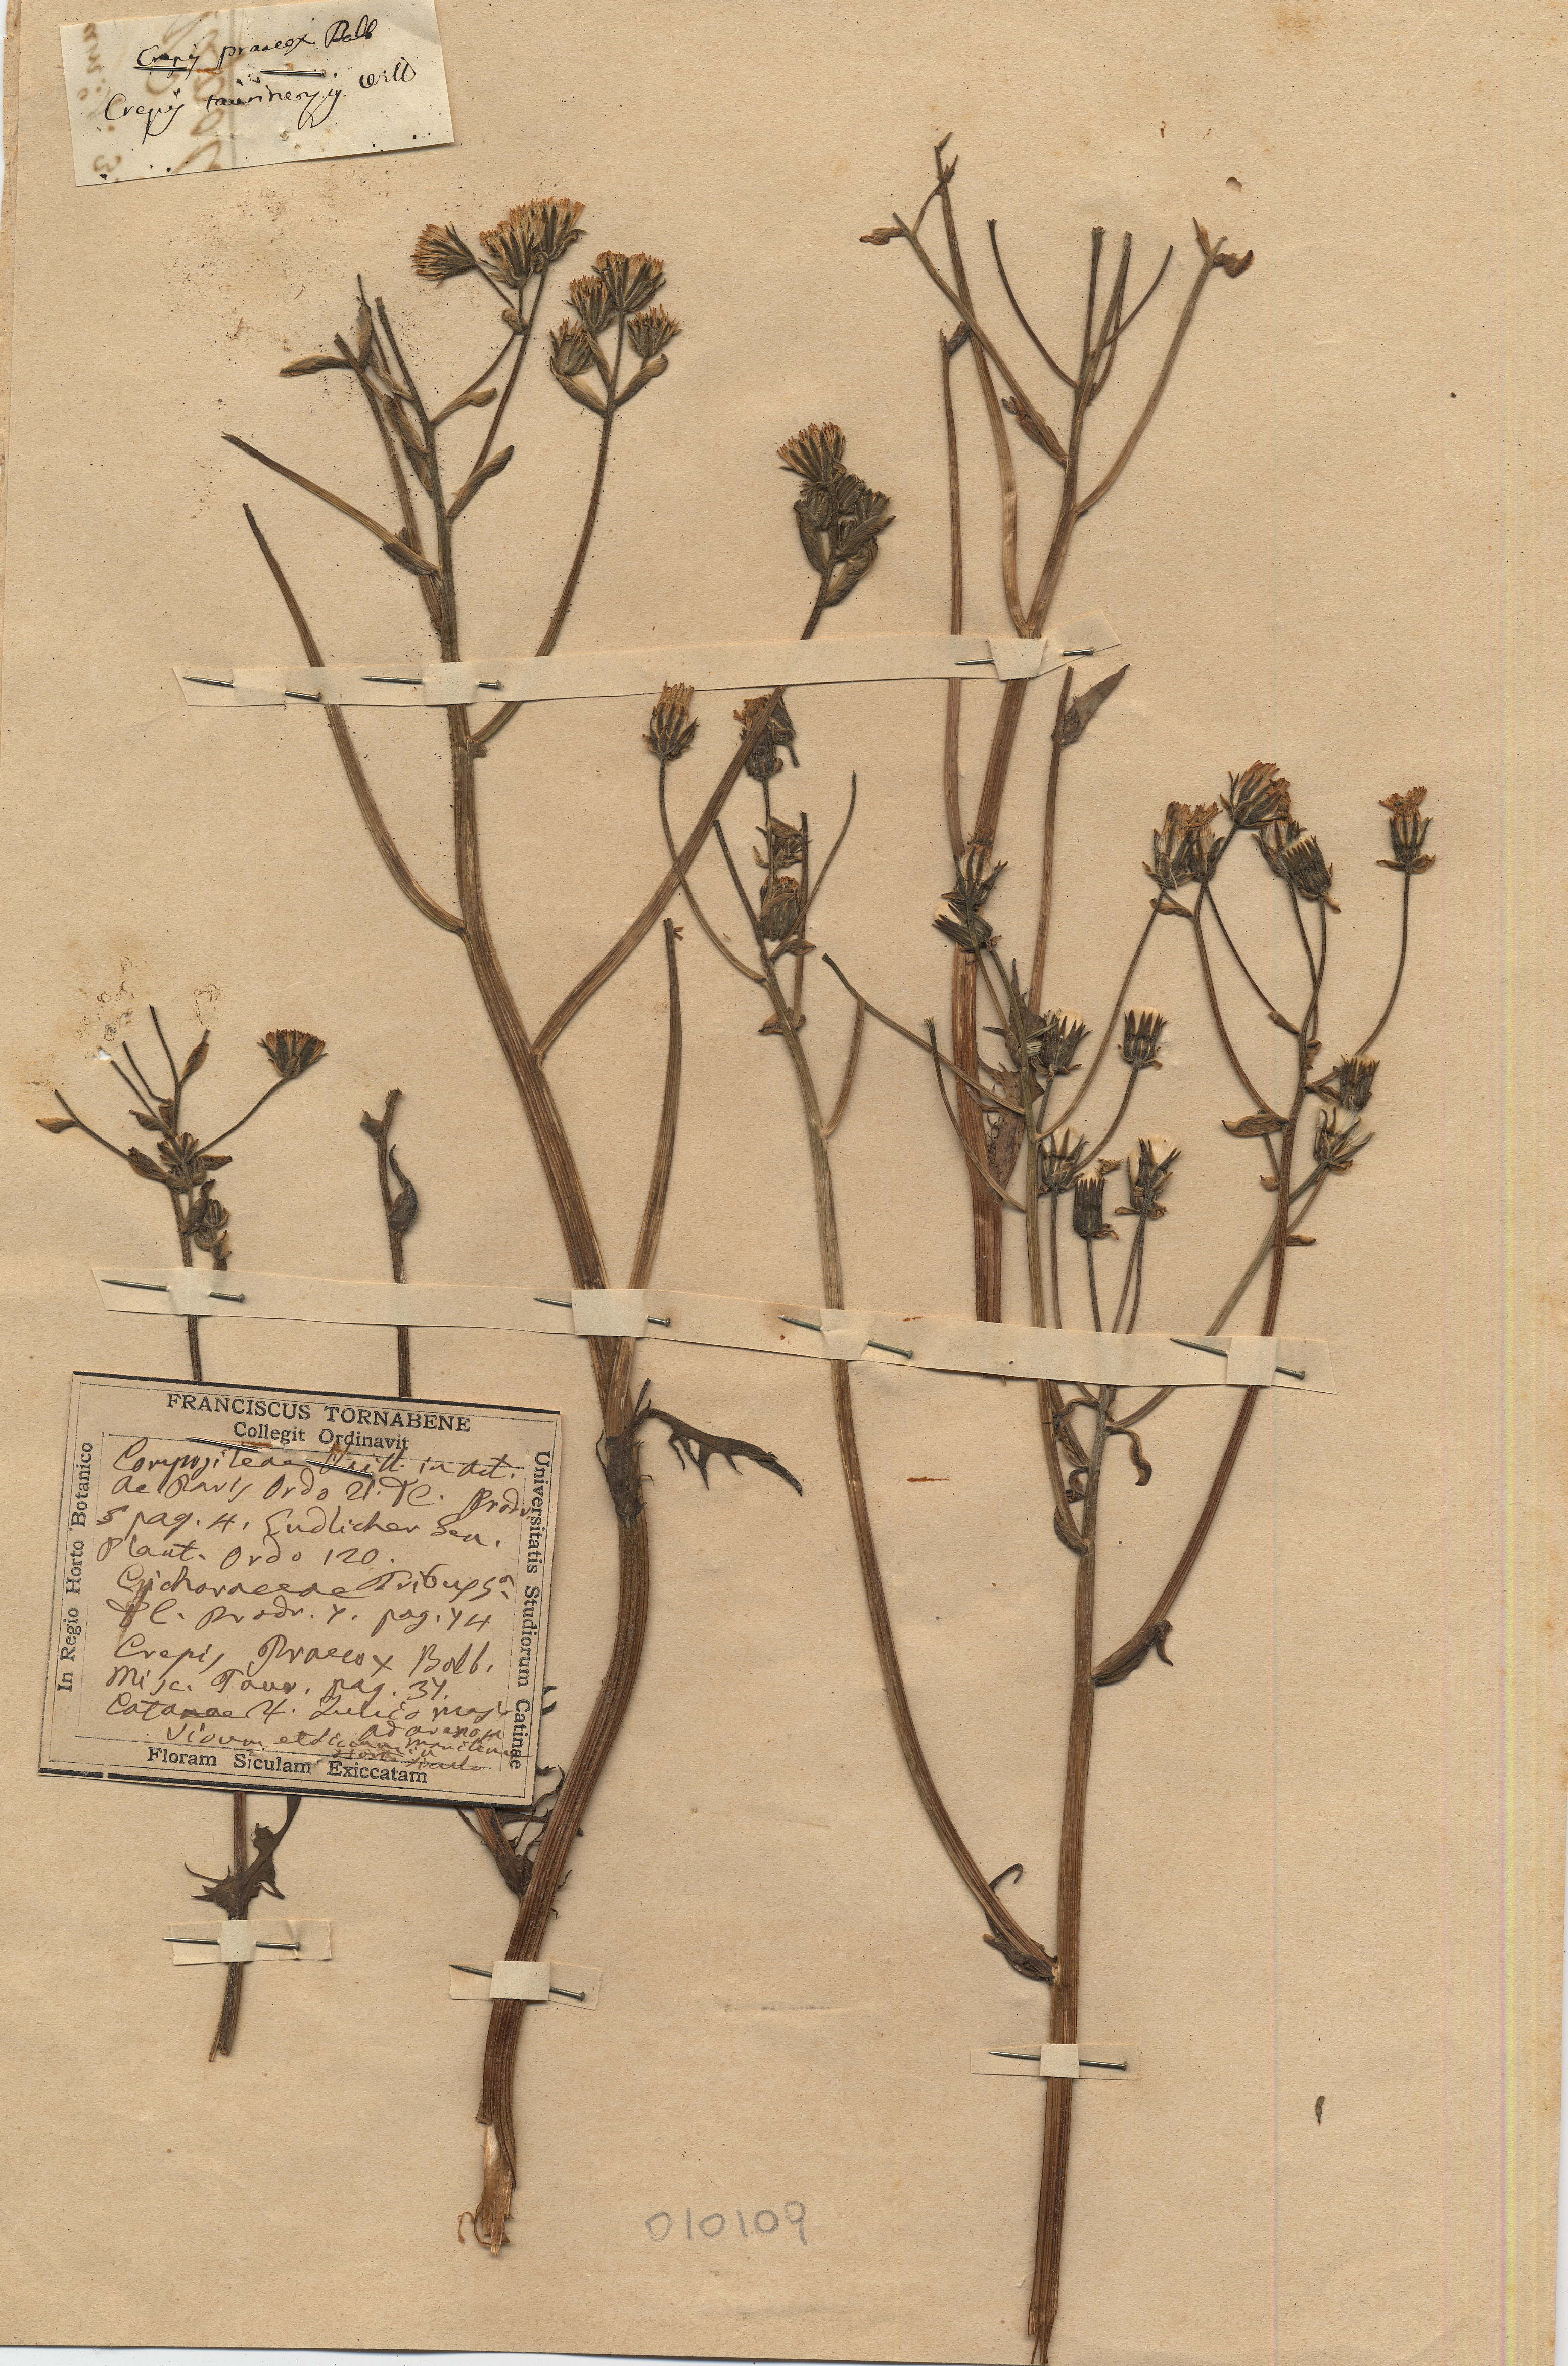 Crepis praecox Balb
Crepis taurinensis. Will
FRANCISCUS TORNABENE
Collegit Ordinavit
In Regio Horto Botanico
Universitatis Studiorum Catinae
Compositeae Vaill. in act.
ac Paris Ordo DC. Prodr.
5 pag. 4. Endlicher Gen.
Plant. Ordo 120.
Cichoraceae Tribus
DC. Prodr. 7. pag. 74
Crepis Praecox Balb.
Misc. Taur. pag. 37.
Catanae 4. Julio
ad arenam
Vivum et siccum
Floram Siculam Exiccatam
010109